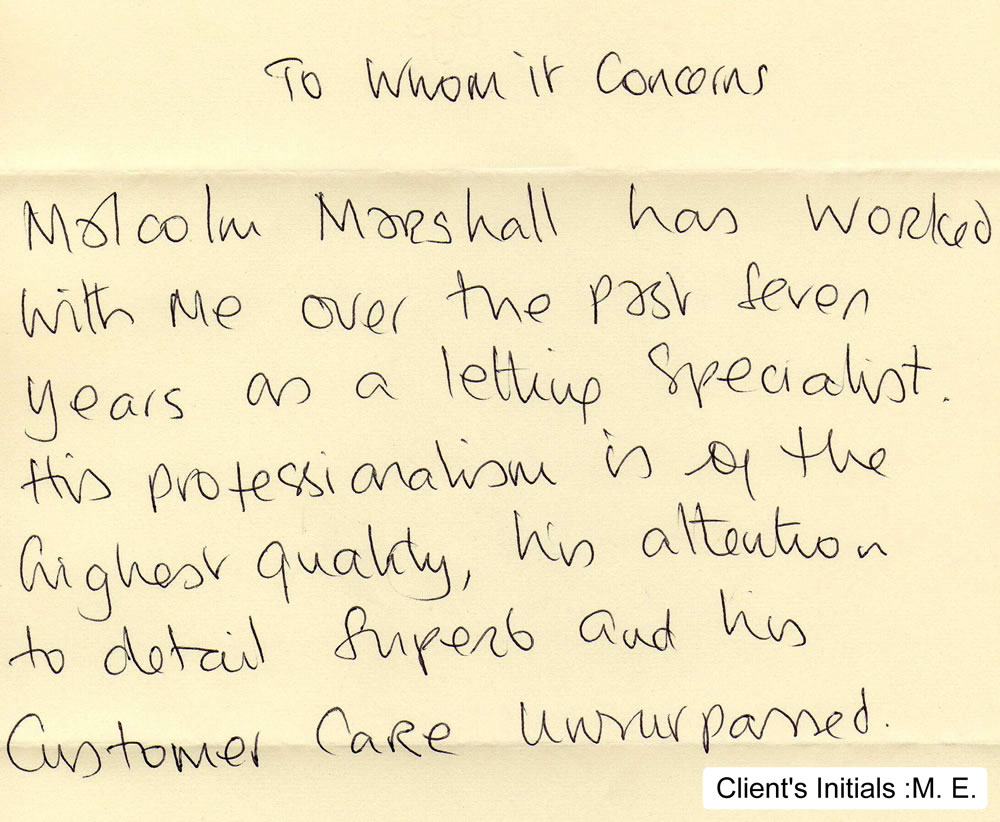 To Whom it Concerns
Malcolm Marshall has worked
with me over the past seven
years as a letting specialist.
His professionalism is of the
highest quality, his attention
to detail superb and his
Customer Care unsurpassed.
Client's Initials :M. E.